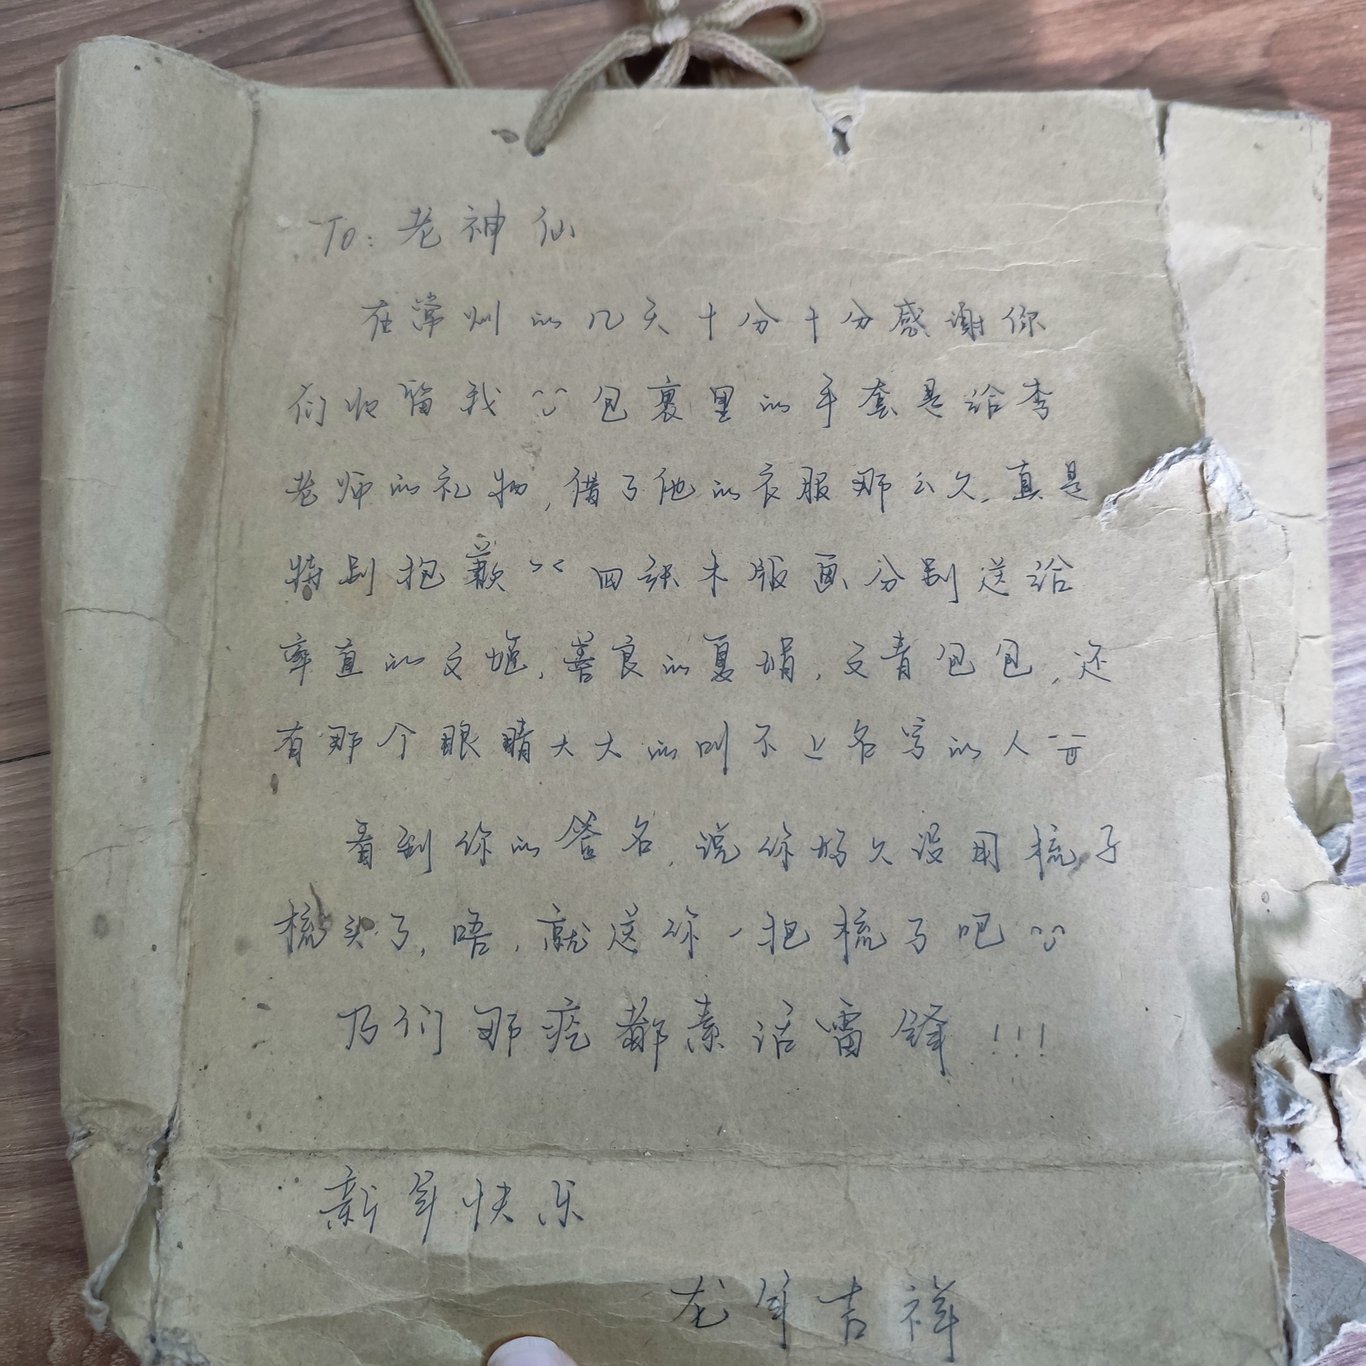 To: 老神仙
在常州的几天十分十分感谢你
们收留我 包裹里的手套是给李
老师的礼物,借了他的衣服那么久,真是
特别抱歉 >< 四张木版画分别送给
率直的文娅,善良的夏娟,文青包包,还
有那个眼睛大大的叫不上名字的人
看到你的签名,说你好久没用梳子
梳头了,唔,就送你一把梳子吧
乃们那疙都素活雷锋!!!
新年快乐
龙年吉祥